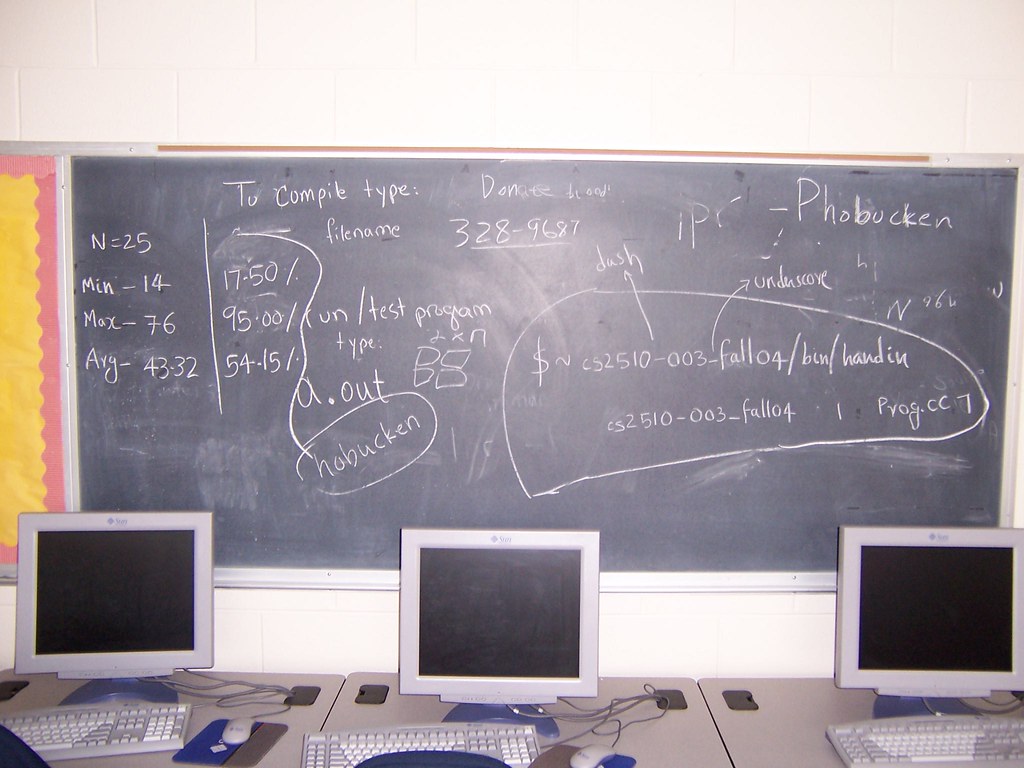 To compile type:
filename
Donate
328-9687
ipc - Phobucken
N=25
Min - 14
Max - 76
Avg - 43.32
17.50 %
95.00 %
54.15 %
un / test program
type:
a.out
hobucken
BS
dash
underscore
$ ~ cs2510-003_fall04/bin/handin
cs2510-003_fall04 1 Prog.CC 7
Sun
Sun
Sun